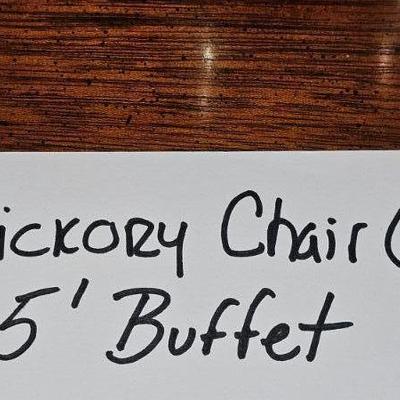 ickory Chair C
5' Buffet